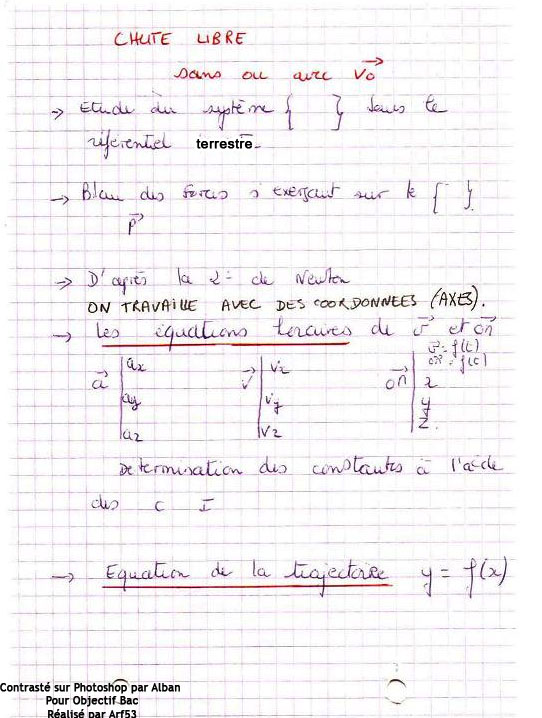 CHUTE LIBRE
sans ou avec v₀→
→ Etude du système { } dans le
référentiel terrestre.
→ Bilan des forces s'exerçant sur le { }
P→
→ D'après la 2= de Newton
ON TRAVAILLE AVEC DES COORDONNEES (AXES).
→ les équations horaires de v→ et OM→
v→ = f(t)
OM→ = f(t)
a→ | ax v→ | vx OM→ | x
ay vy y
az vz z.
Determination des constantes à l'aide
des C I
→ Equation de la trajectoire y = f(x)
Contrasté sur Photoshop par Alban
Pour Objectif Bac
Réalisé par Arf53